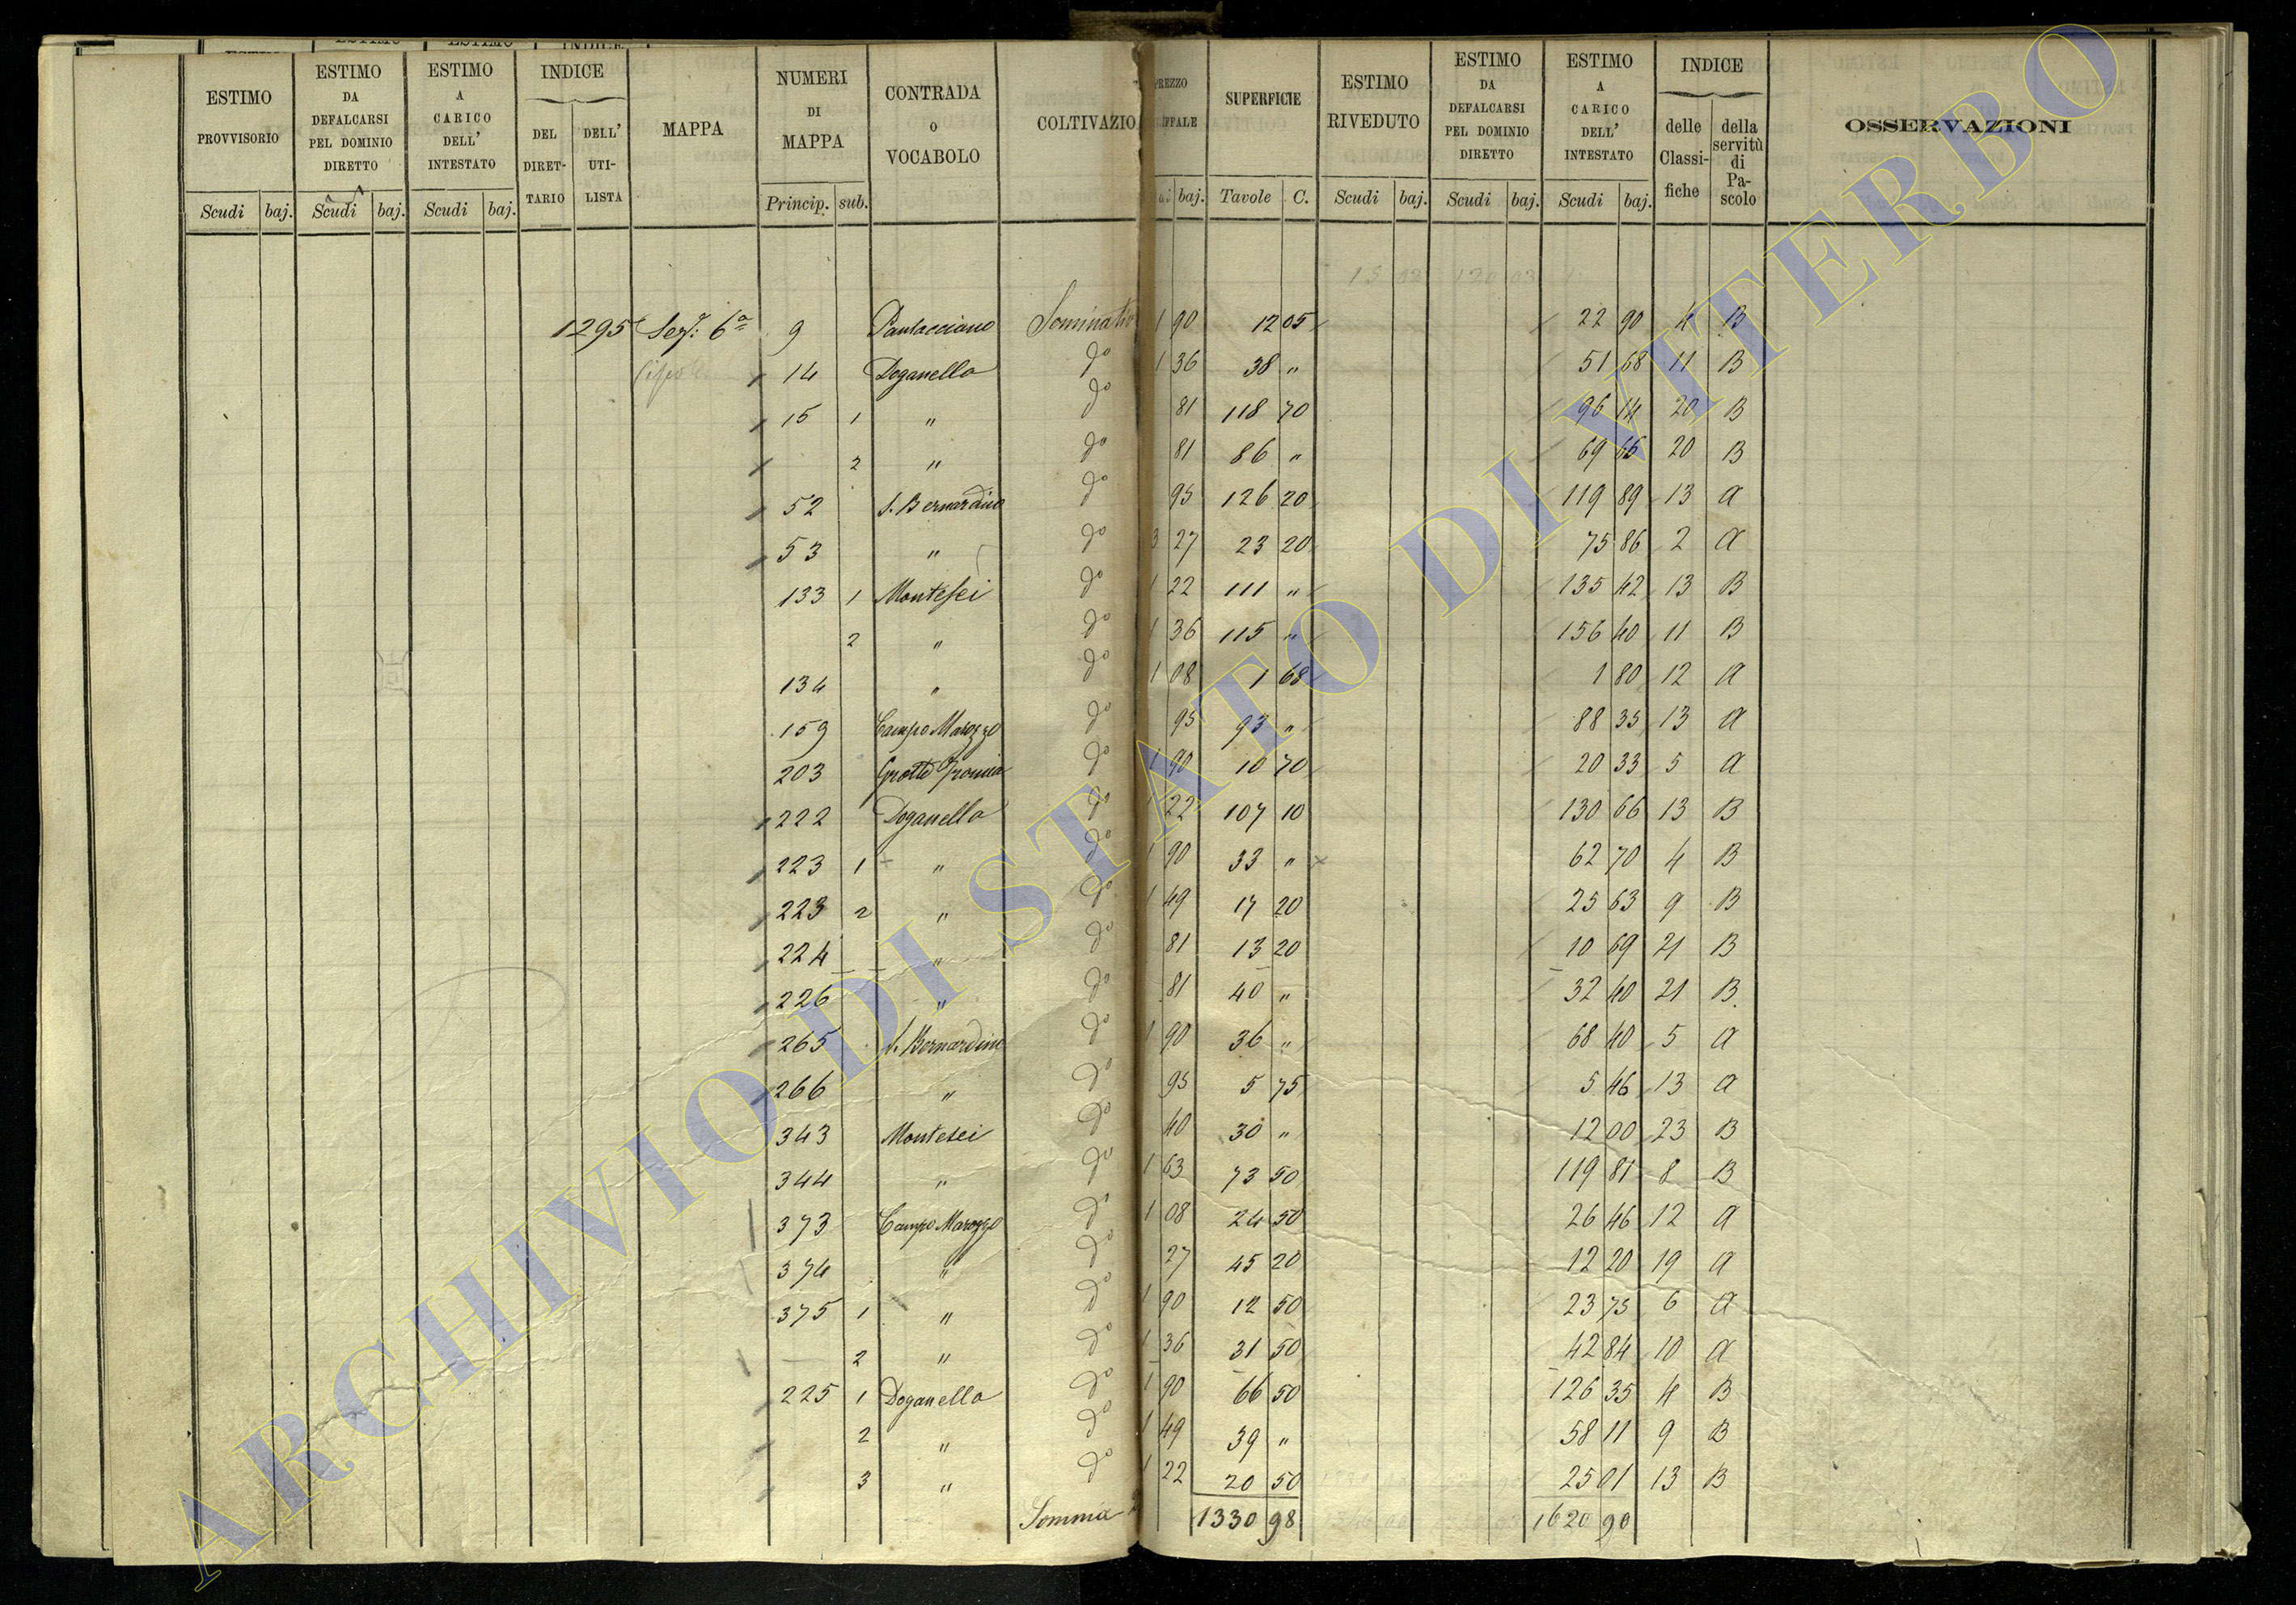 ESTIMO PROVVISORIO | ESTIMO DA DEFALCARSI PEL DOMINIO DIRETTO | ESTIMO A CARICO DELL' INTESTATO | INDICE DEL DIRETTARIO | DELL' UTILISTA | MAPPA | NUMERI DI MAPPA | CONTRADA O VOCABOLO | COLTIVAZIO | PREZZO | SUPERFICIE | ESTIMO RIVEDUTO | ESTIMO DA DEFALCARSI PEL DOMINIO DIRETTO | ESTIMO A CARICO DELL' INTESTATO | INDICE delle Classifiche | della servitù di Pascolo | OSSERVAZIONI
Scudi baj. Scudi baj. Scudi baj. Princip. sub. baj. Tavole C. Scudi baj. Scudi baj. Scudi baj.
1295 Sez: 6a 9 Pantacciano Seminativo 1 90 12 05 22 90 4 B
14 Doganella do 1 36 38 " 51 68 11 B
15 1 " do 81 118 70 96 14 20 B
2 " do 81 86 " 69 66 20 B
52 S. Bernardino do 95 126 20 119 89 13 a
53 " do 3 27 23 20 75 86 2 a
133 1 Montesei do 1 22 111 " 135 42 13 B
2 " do 1 36 115 " 156 40 11 B
134 " do 1 08 1 68 1 80 12 a
159 Campo Marozzo do 95 93 " 88 35 13 a
203 Grotte do 1 90 10 70 20 33 5 a
222 Doganella do 1 22 107 10 130 66 13 B
223 1 " do 1 90 33 " 62 70 4 B
223 2 " do 1 49 17 20 25 63 9 B
224 " do 81 13 20 10 69 21 B
226 " do 81 40 " 32 40 21 B
265 S. Bernardino do 1 90 36 " 68 40 5 a
266 " do 95 5 75 5 46 13 a
343 Montesei do 40 30 " 12 00 23 B
344 " do 1 63 73 50 119 81 8 B
373 Campo Marozzo do 1 08 24 50 26 46 12 a
374 " do 27 45 20 12 20 19 a
375 1 " do 1 90 12 50 23 75 6 a
2 " do 1 36 31 50 42 84 10 a
225 1 Doganella do 1 90 66 50 126 35 4 B
2 " do 1 49 39 " 58 11 9 B
3 " do 1 22 20 50 25 01 13 B
Somma 1330 98 1620 90
ARCHIVIO DI STATO DI VITERBO